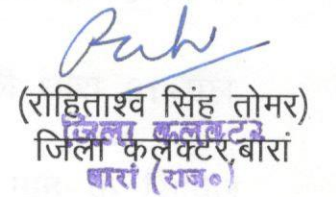 (रोहिताश्व सिंह तोमर)
जिला कलक्टर
जिला कलेक्टर,बांरा
बारां (राज०)